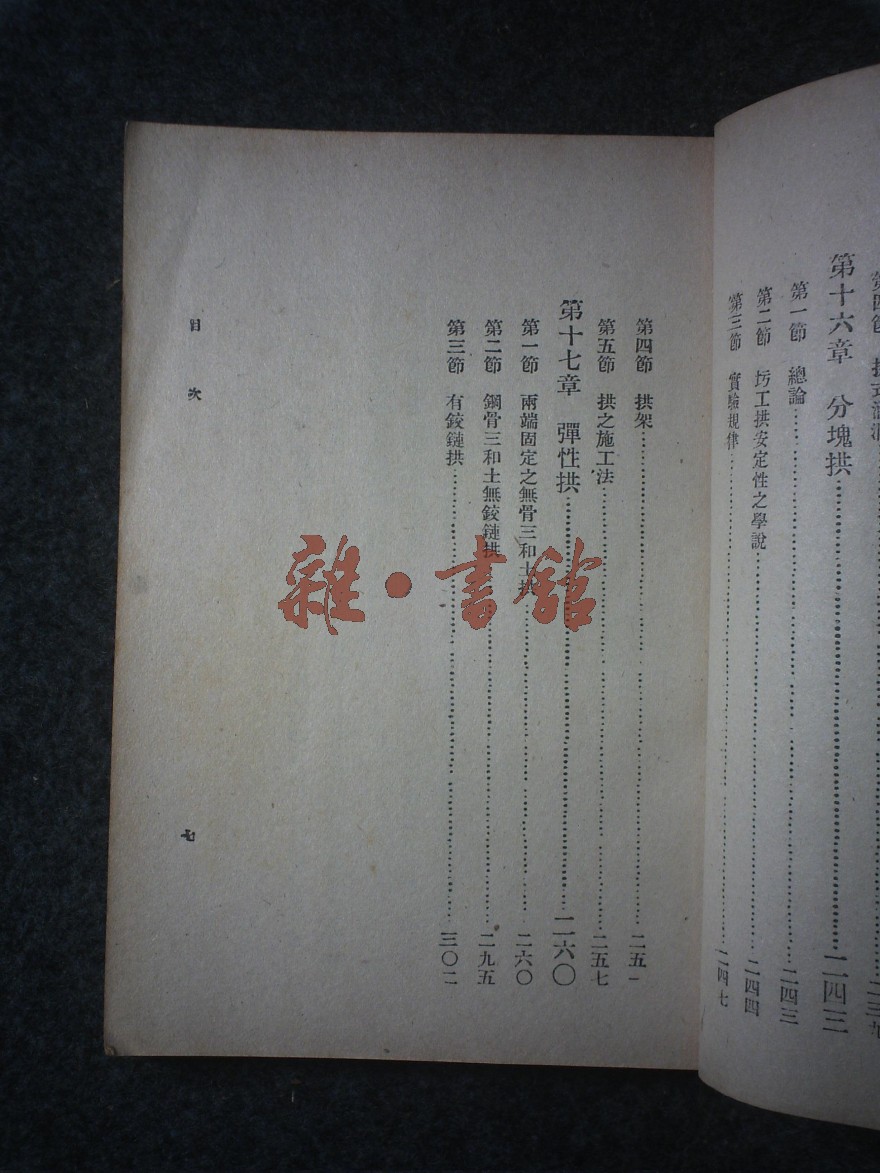 第十六章 分塊拱……二四三
第一節 總論……二四三
第二節 圬工拱安定性之學說……二四四
第三節 實驗規律……二四七
第四節 拱架……二五一
第五節 拱之施工法……二五七
第十七章 彈性拱……二六〇
第一節 兩端固定之無骨三和土拱……二六〇
第二節 鋼骨三和土無鉸鏈拱……二九五
第三節 有鉸鏈拱……三〇二
目次 七
雜·書館